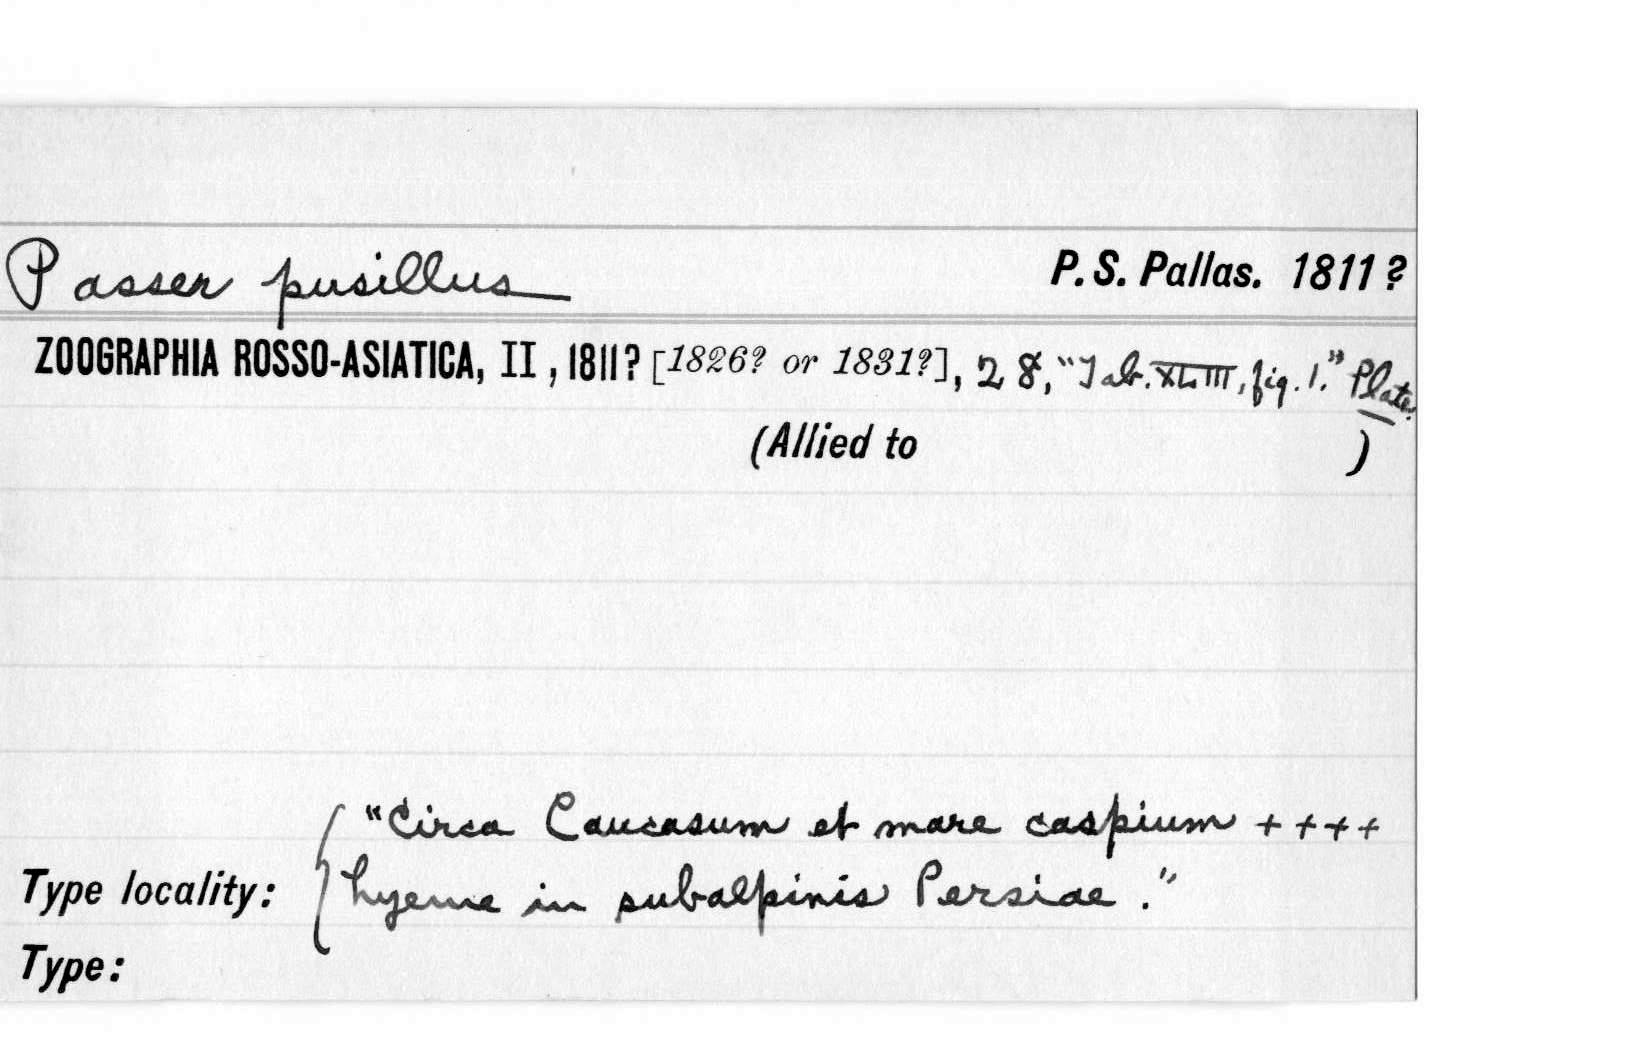 Passer pusillus P. S. Pallas. 1811?
ZOOGRAPHIA ROSSO-ASIATICA, II, 1811? [1826? or 1831?], 28, "Tab. XLIII, fig. 1." Plate.
(Allied to )
"Circa Caucasum et mare caspium ++++
Type locality: hyeme in subalpinis Persiae."
Type: